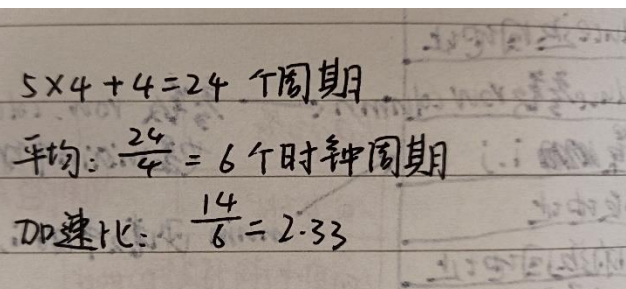 5×4+4=24 个周期
平均: 24/4 = 6个时钟周期
加速比: 14/6 = 2.33